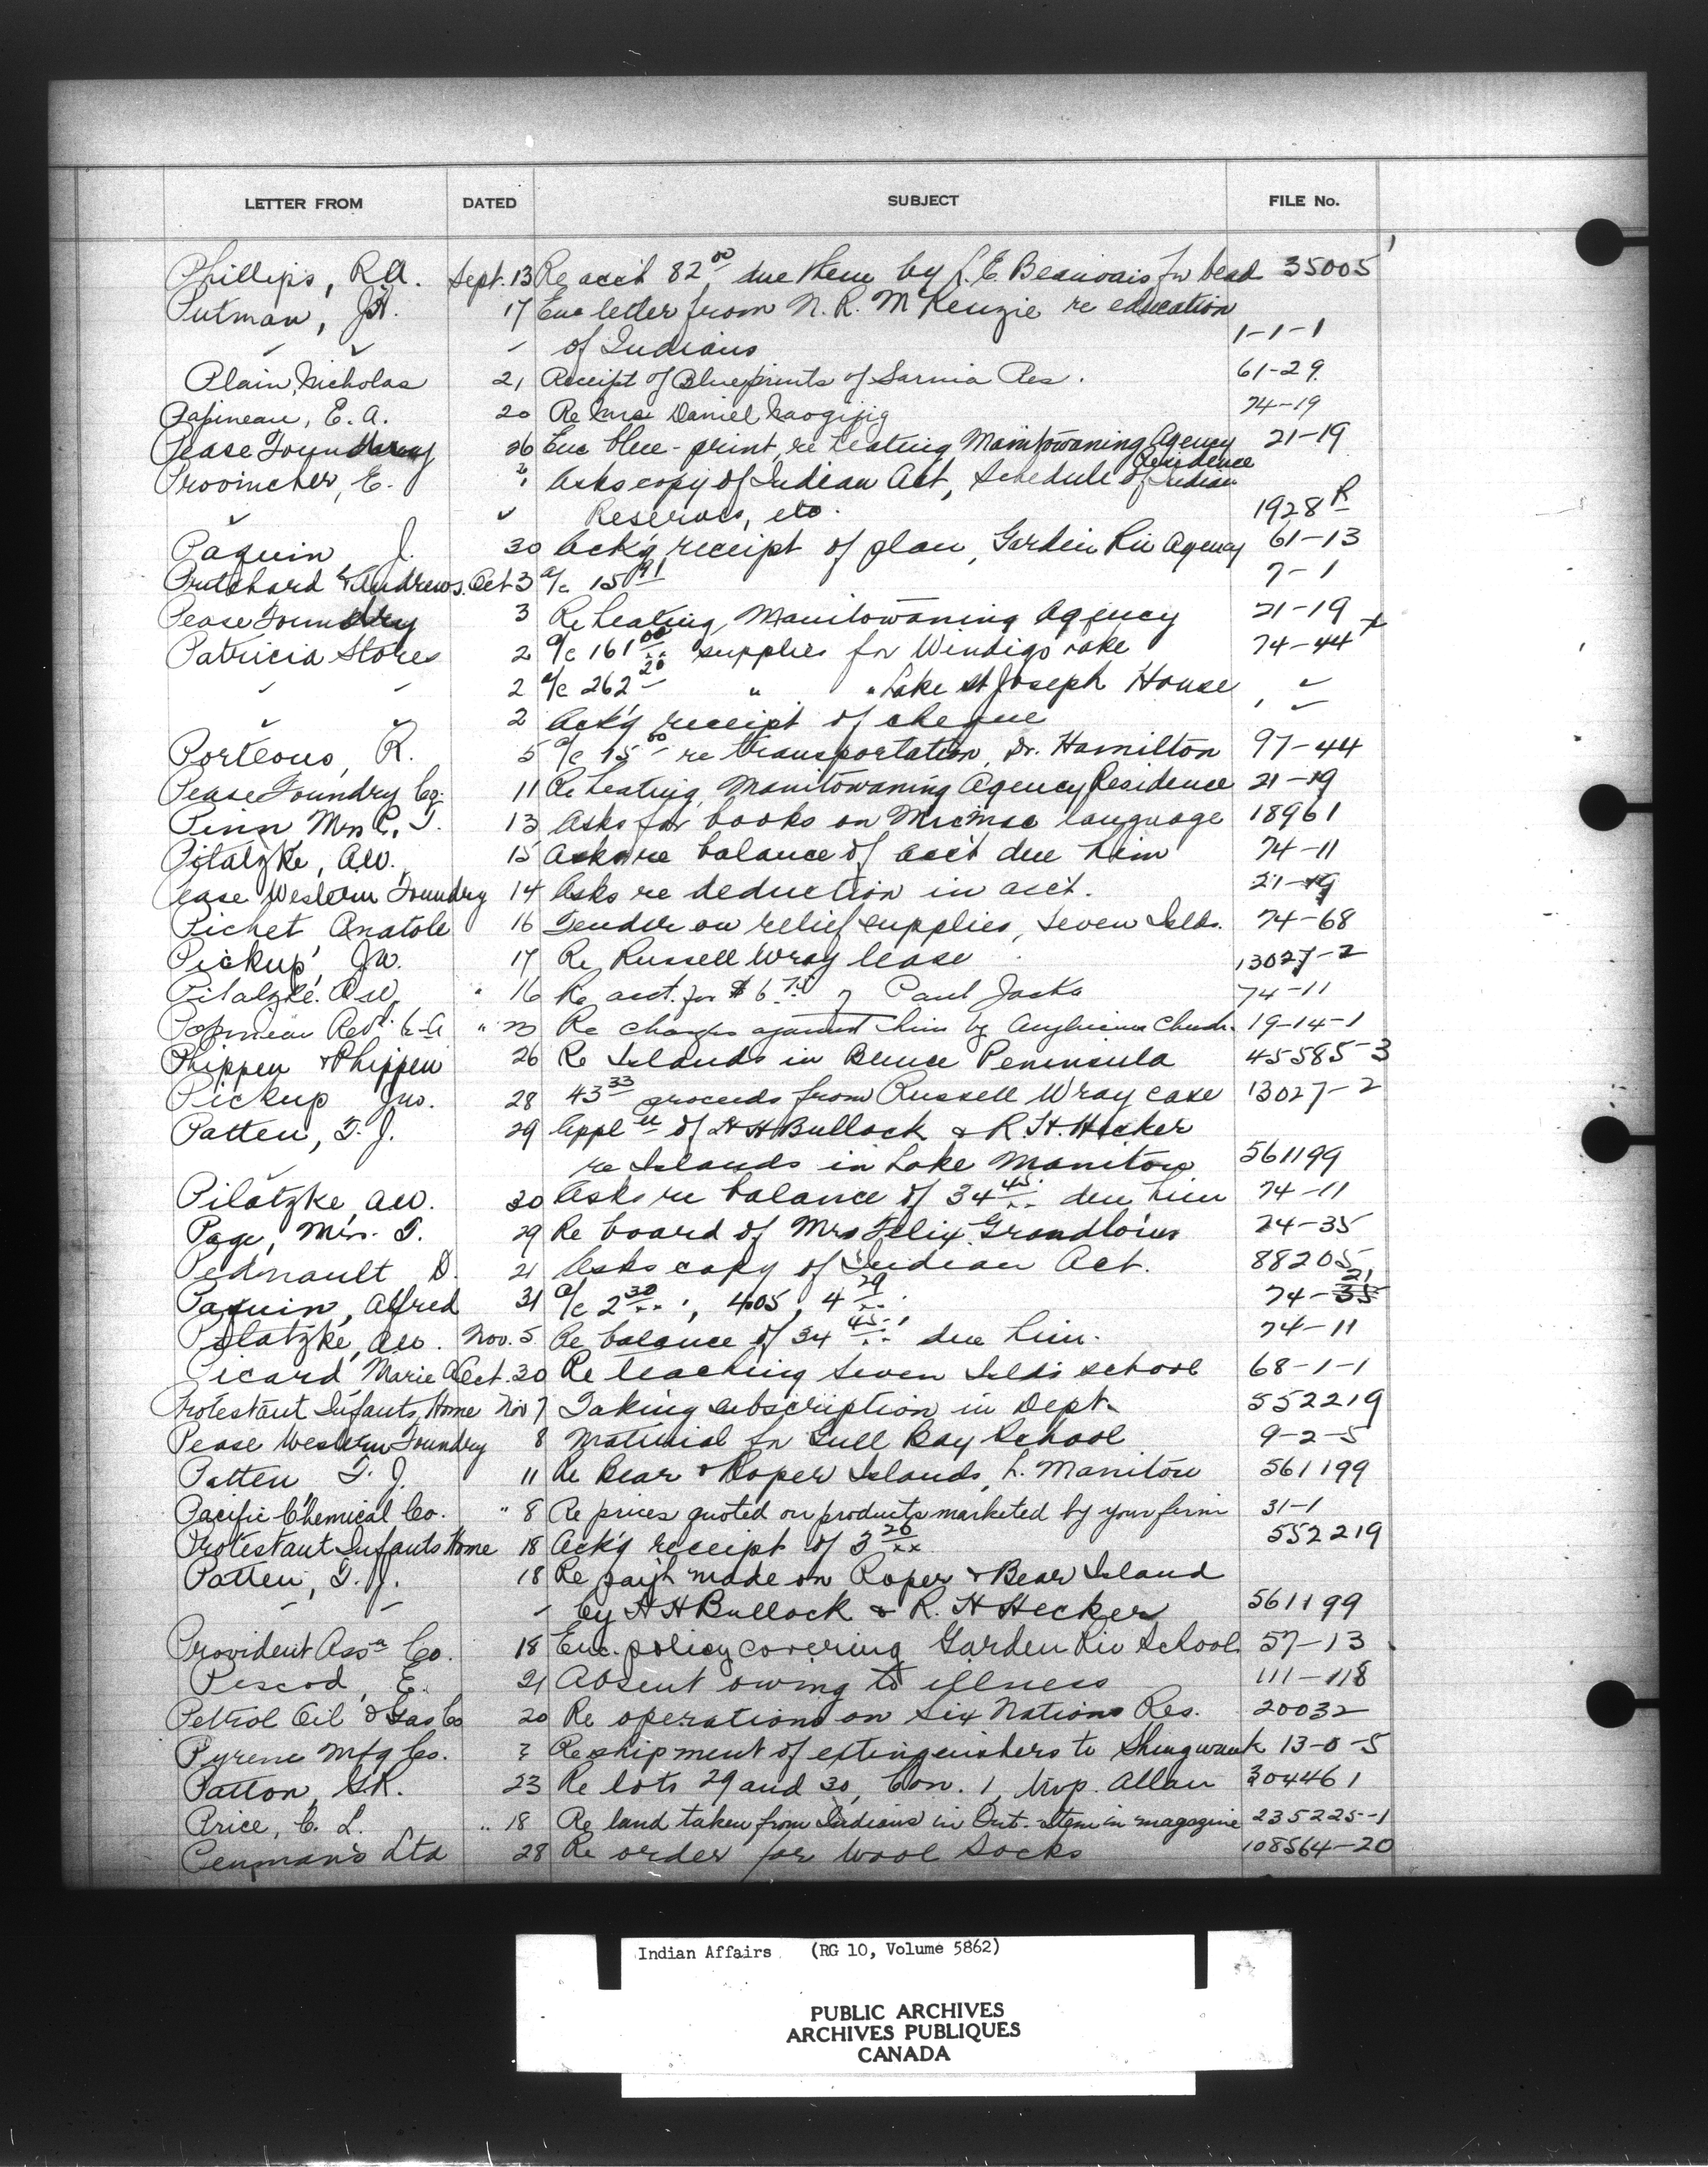 LETTER FROM DATED SUBJECT FILE No.
Phillips, R.A. Sept. 13 Re acct 82 00 due them by L. E. Beauvais for bead 35005
Putman, J.H. 17 Enc letter from N. R. McKenzie re education
" " " of Indians 1-1-1
Plain, Nicholas 21 Receipt of Blueprints of Sarnia Res. 61-29
Papineau, E. A. 20 Re Mrs Daniel Naogijig 74-19
Pease Foundry 26 Enc blue-print, re heating Manitowaning Agency Residence 21-19
Provincher, E. ? Asks copy of Indian Act, Schedule of Indian
" Reserves, etc. 1928 R
Paquin J. 30 Ack'g receipt of plan, Garden Riv Agency 61-13
Pritchard & Andrews. Oct 3 a/c 15 91 7-1
Pease Foundry 3 Re heating, Manitowaning Agency 21-19
Patricia Stores 2 a/c 161 00 supplies for Windigo Lake 74-44
" " 2 a/c 262 20 " " Lake St Joseph House " "
" " 2 Ack'g receipt of cheque " "
Porteous, R. 5 a/c 15 60 re transportation, Dr. Hamilton 97-44
Pease Foundry Co. 11 Re heating, Manitowaning Agency Residence 21-19
Pinn Mrs C. T. 13 Asks for books on Micmac language 18961
Pilatzke, A.W. 15 Asks re balance of acc't due him 74-11
Pease Western Foundry 14 Asks re deduction in acct. 21-19
Pichet Anatole 16 Tender on relief supplies, Seven Islds. 74-68
Pickup, Jw. 17 Re Russell Wray lease 13027-2
Pilatzke. A.W. " 16 Re acct. for $6 Paul Jacks 74-11
Papineau Rev. " 23 Re charges against him by Anglican Church. 19-14-1
Phippen & Phippen 26 Re Islands in Bruce Peninsula 45585-3
Pickup Jno. 28 43 33 proceeds from Russell Wray case 13027-2
Patten, T. J. 29 Appl of H H Bullock & R. H. Hecker
" re Islands in Lake Manitou 561199
Pilatzke, A.W. 30 Asks re balance of 34 45 due him 74-11
Page, Mrs. T. 29 Re board of Mrs Felix Grandlouis 74-35
Pednault D. 21 Asks copy of Indian Act. 88205
Paquin, Alfred 31 a/c 2 30, 405, 4 29 74-35 21
Pilatzke, A.W. Nov. 5 Re balance of 34 45 due him. 74-11
Picard Marie A Oct. 30 Re teaching Seven Islds school 68-1-1
Protestant Infants Home Nov 7 Taking subscription in Dept. 552219
Pease Western Foundry 8 Material for Gull Bay School 9-2-5
Patten T. J. 11 Re Bear & Roper Islands, L. Manitou 561199
Pacific Chemical Co. " 8 Re prices quoted on products marketed by your firm 31-1
Protestant Infants Home 18 Ack'g receipt of 3 20 xx 552219
Patten, T. J. 18 Re pay't made on Roper & Bear Island
" " " by H H Bullock & R. H Hecker 561199
Provident Assce Co. 18 Enc. policy covering Garden Riv School 57-13
Pescod, E. 21 Absent owing to illness 111-118
Petrol Oil & Gas Co 20 Re operations on Six Nations Res. 20032
Pyrene Mfg Co. ? Re shipment of extinguishers to Shingwauk 13-0-5
Patton, G.R. 23 Re lots 29 and 30, Con. 1, twp. Allan 304461
Price, C. L. " 18 Re land taken from Indians in Ont. Item in magazine 235225-1
Penmans Ltd 28 Re order for wool Socks 108564-20
Indian Affairs (RG 10, Volume 5862)
PUBLIC ARCHIVES
ARCHIVES PUBLIQUES
CANADA